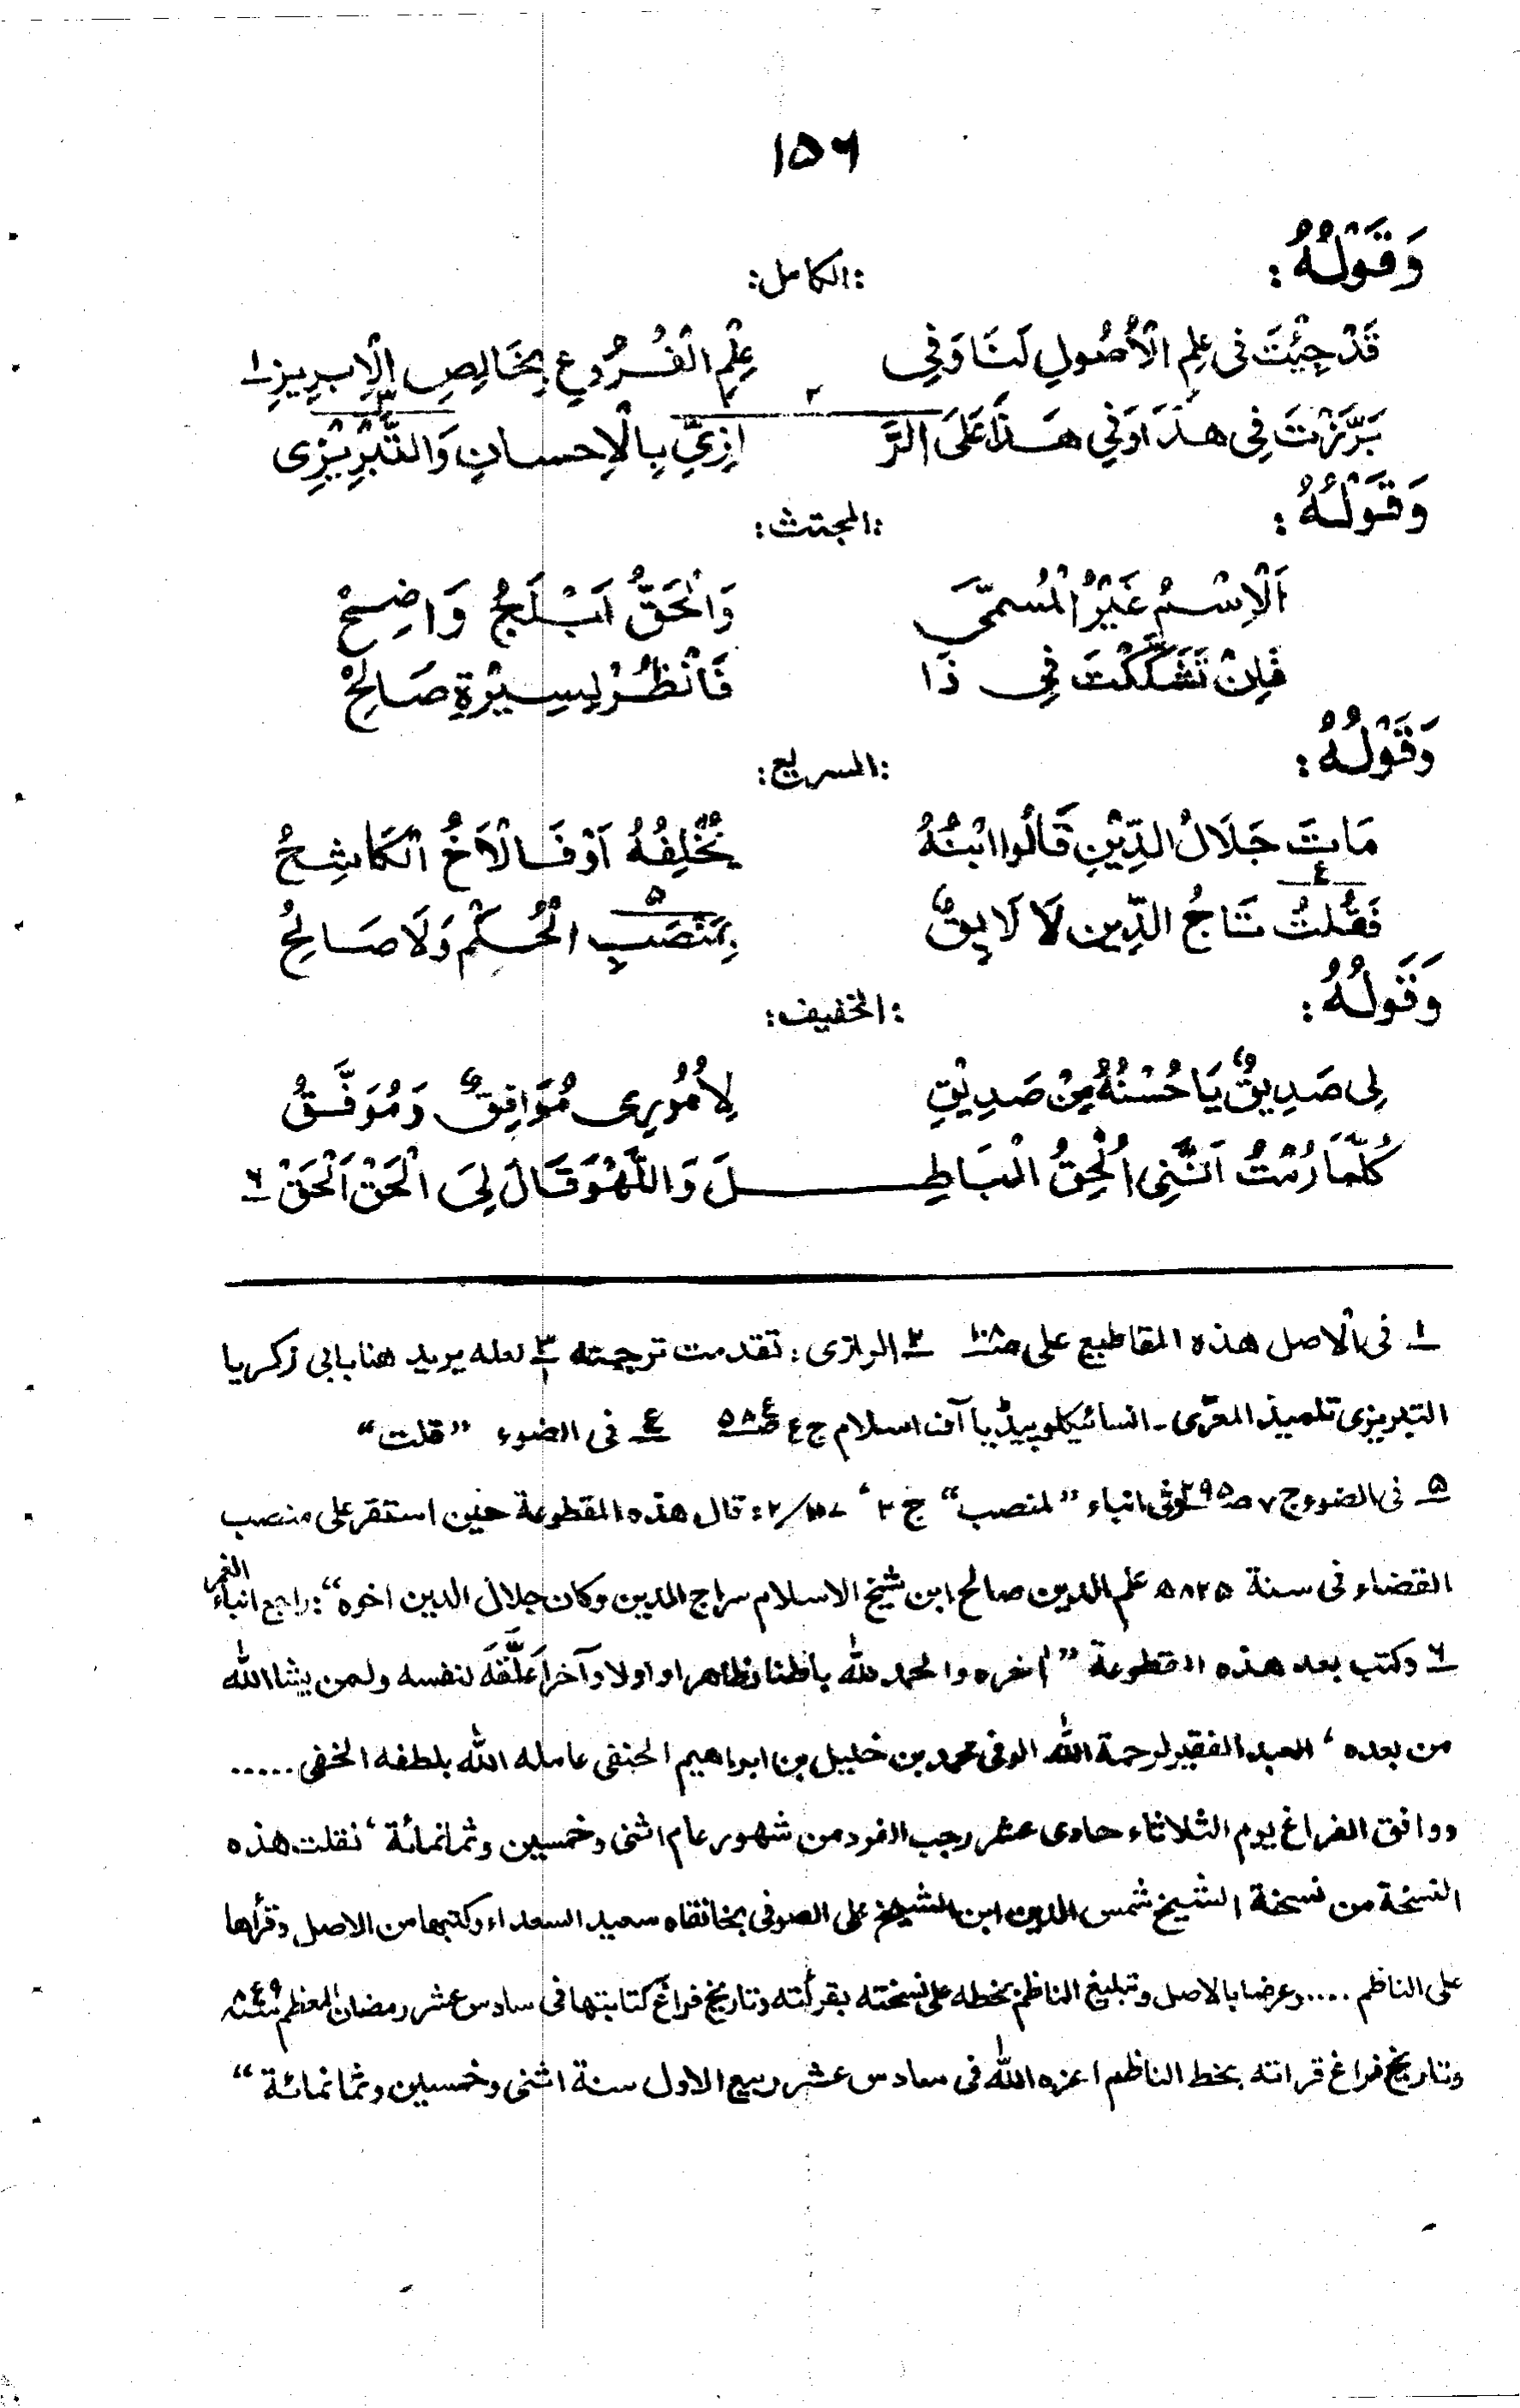 ١٥٦
وَقَوْلُهُ :
:الكامل:
قَدْ جِئْتَ فى عِلِم الْأُصُولِ لَنَا وَفِي عِلْمِ الْفُرُوعِ بِخَالِصِ الْإِبرِيزِ ١
بَرَّزْتَ فِى هذَا وَفِي هَذَا عَلَى الرَّ ٢ ازِيِّ بِالْاِحسانِ وَالتَّبْرِيْزِى ٣
وَقَوْلُهُ :
:المجتث:
اَلْاِسْمُ غَيْرُ الْمُسمّٰى وَالْحَقُّ اَبْلَجُ وَاضِحْ
فَاِنْ تَشَكَّكْتَ فِى ذَا فَانْظُرْ لِسِيْرَةِ صَالِحْ
وَقَوْلُهُ :
:السريع:
مَاتَ جَلَالُ الدِّيْنِ قَالُوا ابْنُهُ يُخْلِفُهُ اَوْ فَالْاَخُ الْكَاشِحُ
فَقُلتُ ٤ تَاجُ الدِّينِ لَا لَا يِقٌ بِمَنْصَبِ ٥ الْحُكْمِ وَلَا صَالِحُ
وَقَولُهُ :
:الخفيف:
لِى صَدِيقٌ يَا حُسْنُهُ مِنْ صَدِيْقٍ لِاُمُوْرِى مُوَافِقٌ وَمُوَفَّقُ
كُلَّمَا رُمْتُ اَنَّنِى اُلْحِقُ الْبَاطِـــلَ وَاللَّهْوَ قَالَ لِىَ الْحَقْ اَلْحَقْ ٦
١ فى الْاصل هذه المقاطيع على ص ١٠٨ ٢ الرازى : تقدمت ترجمته ٣ لعله يريد هنا بابى زكريا
التبريزى تلميذ المعرّى ـ انسائيكلوپيڈيا آف اسلام ج ٤ ص ٥٨٤ ٤ فى الضوء "قلت"
٥ فى الضوء ج ٧ ص ٢٩٥ وفى انباء "لمنصب" ج ٣ ، : قال هذه المقطوعة حين استقر على منصب
القضاء فى سنة ٨٢٥ھ علم الدين صالح ابن شيخ الاسلام سراج الدين وكان جلال الدين اخوه" : راجع انباء الغمر
٦ وكتب بعد هذه المقطوعة "آخره والحمد لله باطنا وظاهرا و اولا وآخراً عَلَّقَهُ لنفسه ولمن يشا الله
من بعده ، العبد الفقير لرحمة الله الوفى محمد بن خليل بن ابراهيم الحنفى عامله الله بلطفه الخفى .....
ووافق الفراغ يوم الثلاثاء حادى عشر رجب الفرد من شهور عام اثنى وخمسين وثمانمائة ، نقلت هذه
النسخة من نسخة الشيخ شمس الدين ابن الشيخ على الصوفى بخانقاه سعيد السعداء وكتبها من الاصل وقرأها
على الناظم .... وعرضا بالاصل وتبليغ الناظم بخطه على نسخته بقرأته وتاريخ فراغ كتابتها فى سادس عشر رمضان المعظم
وتاريخ فراغ قراته بخط الناظم اعزه الله فى سادس عشر ربيع الاول سنة اثنى وخمسين وثمانمائة "